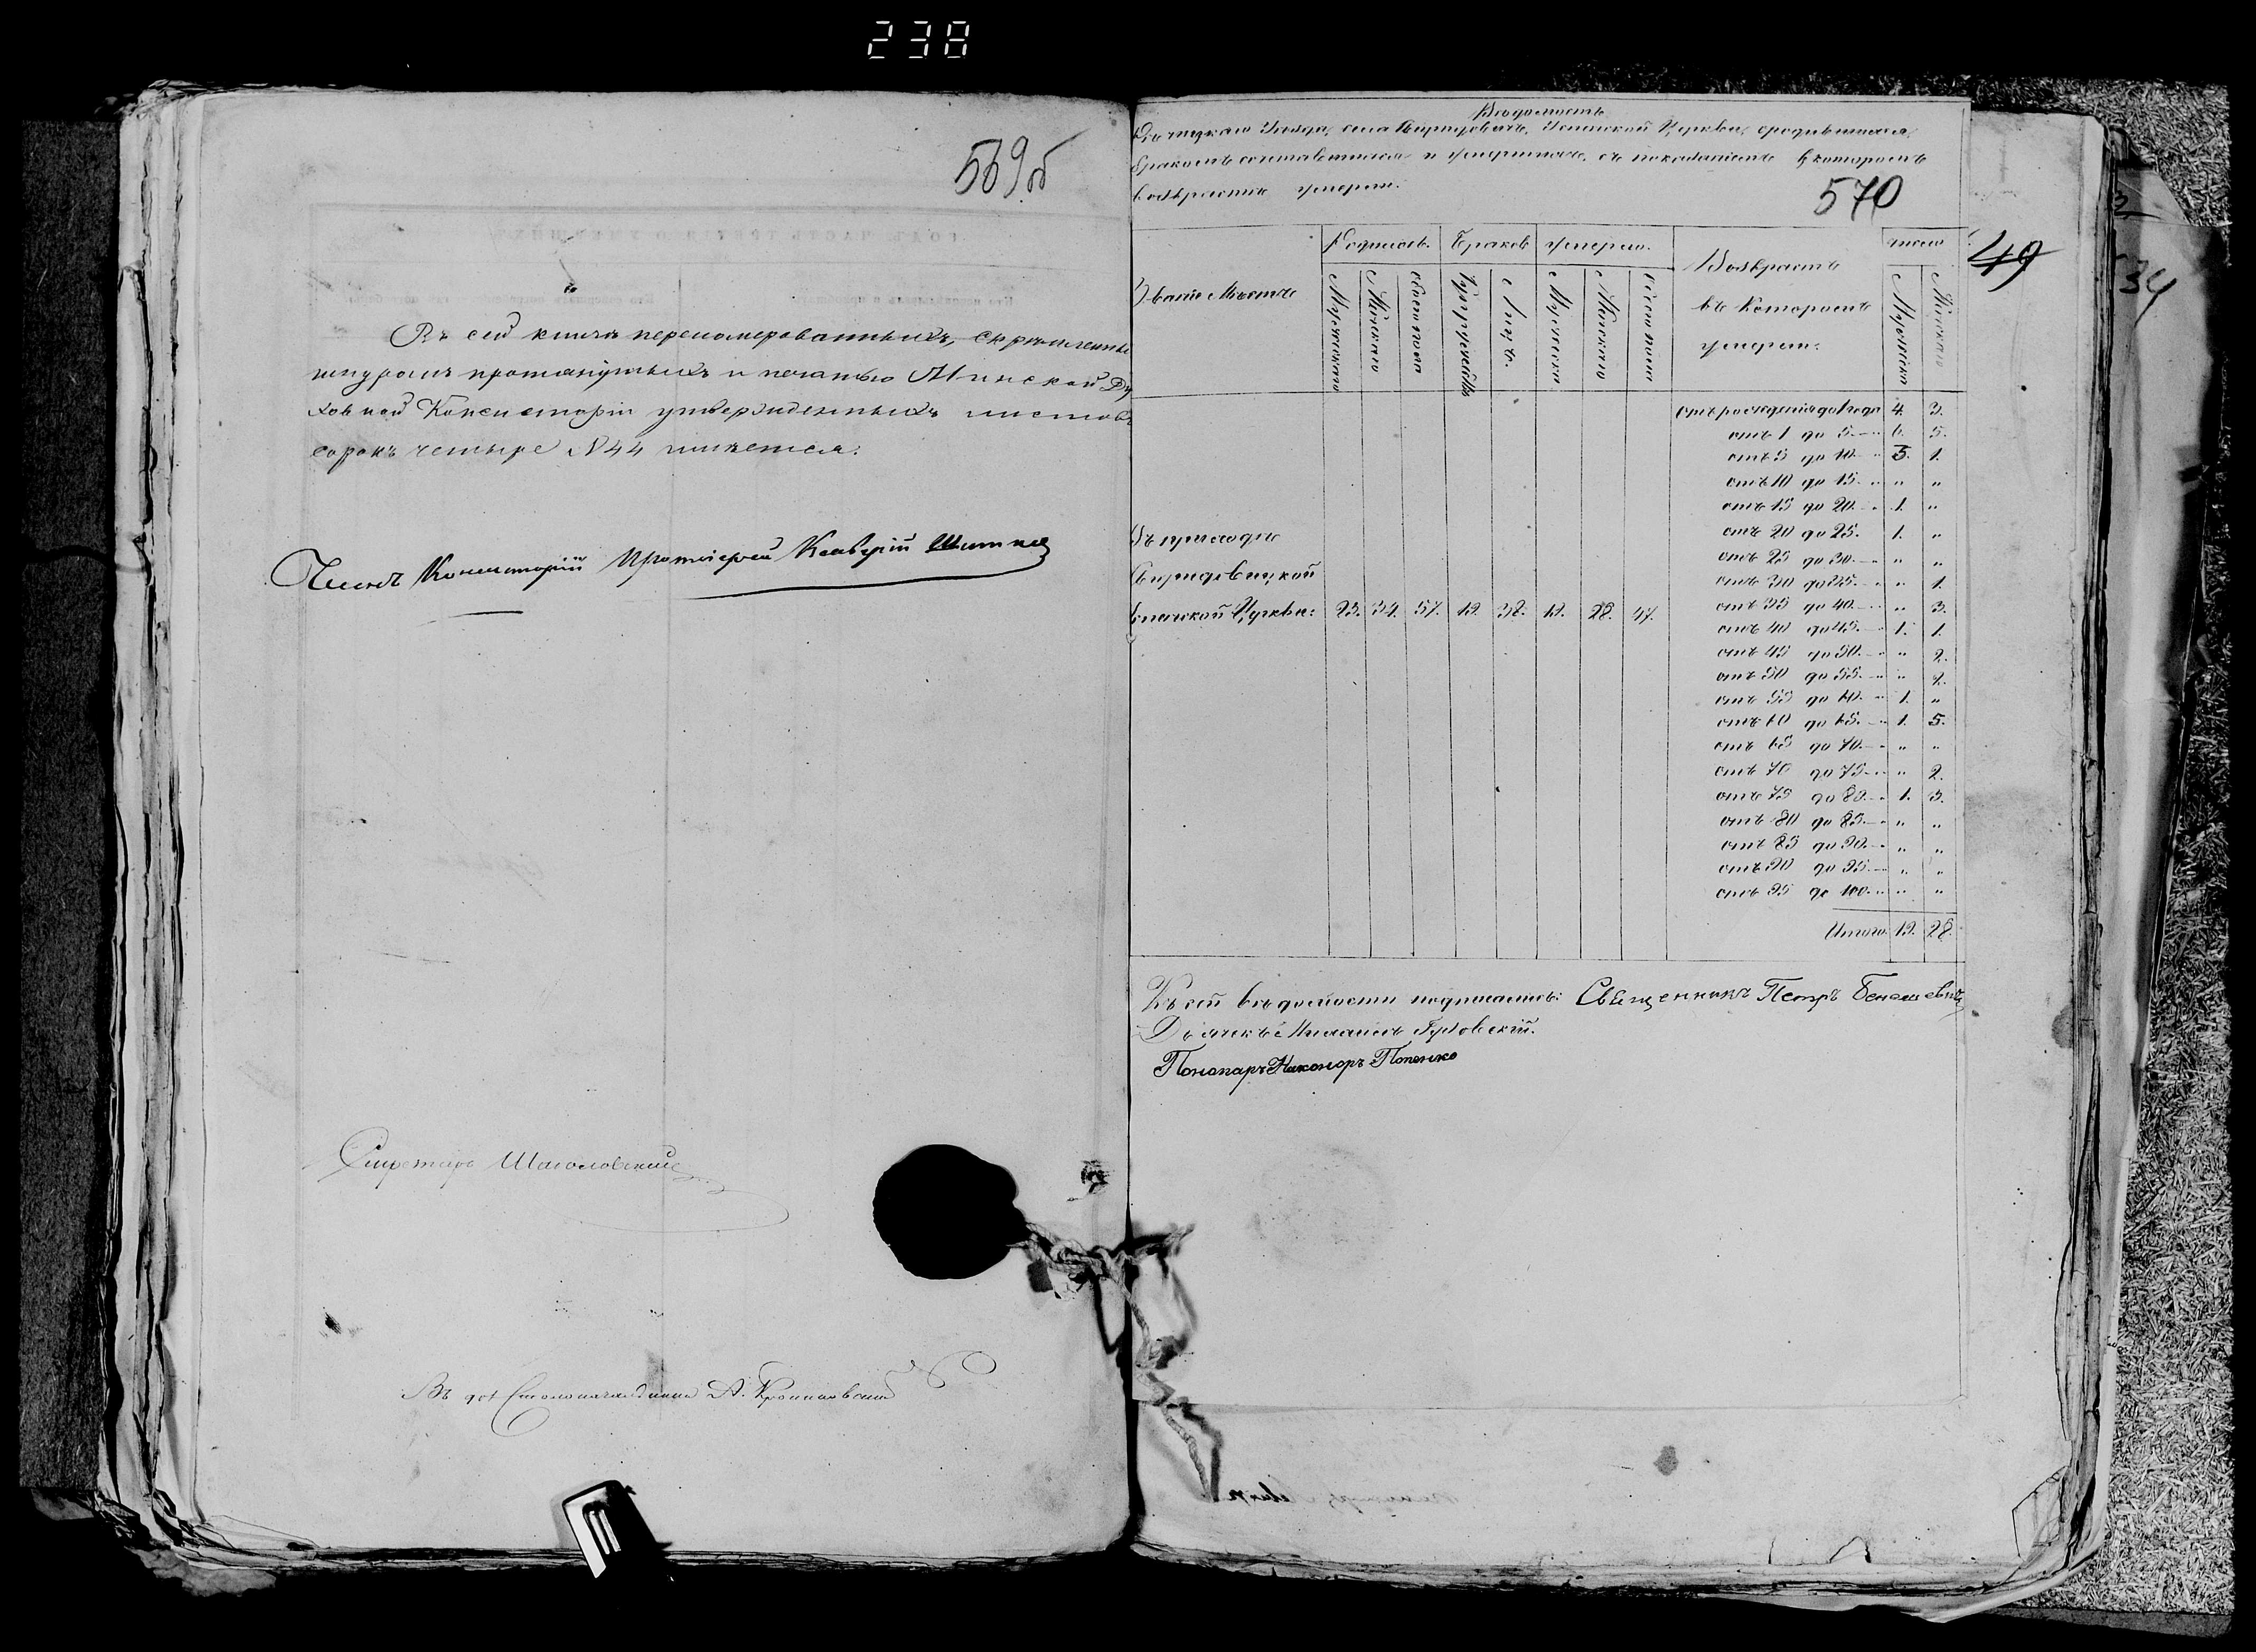 238
569об
Въ сей книгѣ перенумерованныхъ, скрѣпленны
шнуромъ протянутыхъ и печатью Минской Ду
ховной Консисторіи утвержденныхъ листовъ
сорокъ четыре N 44 имѣется.
Членъ Консисторіи Протоіерей
Секретарь
Въ дол Столоначальника А.
Вѣдомость
уѣзда, села Церкви,
бракомъ сочетавшихся и умершихъ, съ показаніемъ въ которомъ
возрастѣ умерли.
570
49
34
Званіе Мѣстъ
Родилось. Браков умерло.
Возрастъ
въ которомъ
умерли.
число
Мужескаго Женскаго обоего пола Лицъ. Мужеска Женскаго обоего пола Мужеска Женскаго
отъ рожденія до 1 года 4. 3.
отъ 1 до 5. 6. 5.
отъ 5 до 10. 3. 1.
отъ 10 до 15. " "
отъ 15 до 20. 1. "
отъ 20 до 25. 1. "
отъ 25 до 30. " "
отъ 30 до 35. " 1.
отъ 35 до 40. " 3.
отъ 40 до 45. 1. 1.
отъ 45 до 50. " 2.
отъ 50 до 55. " 2.
отъ 55 до 60. 1. "
отъ 60 до 65. 1. 5.
отъ 65 до 70. " "
отъ 70 до 75. " 2.
отъ 75 до 80. 1. 3.
отъ 80 до 85. " "
отъ 85 до 90. " "
отъ 90 до 95. " "
отъ 95 до 100. " "
Итого 19. 28.
Въ приходѣ
Церкви: 23. 34. 57. 19. 38. 19. 28. 47.
Къ сей вѣдомости подписались: Священникъ Петръ Бенешевичъ
Дьячекъ Михаилъ
Пономарь Никоноръ Попенко